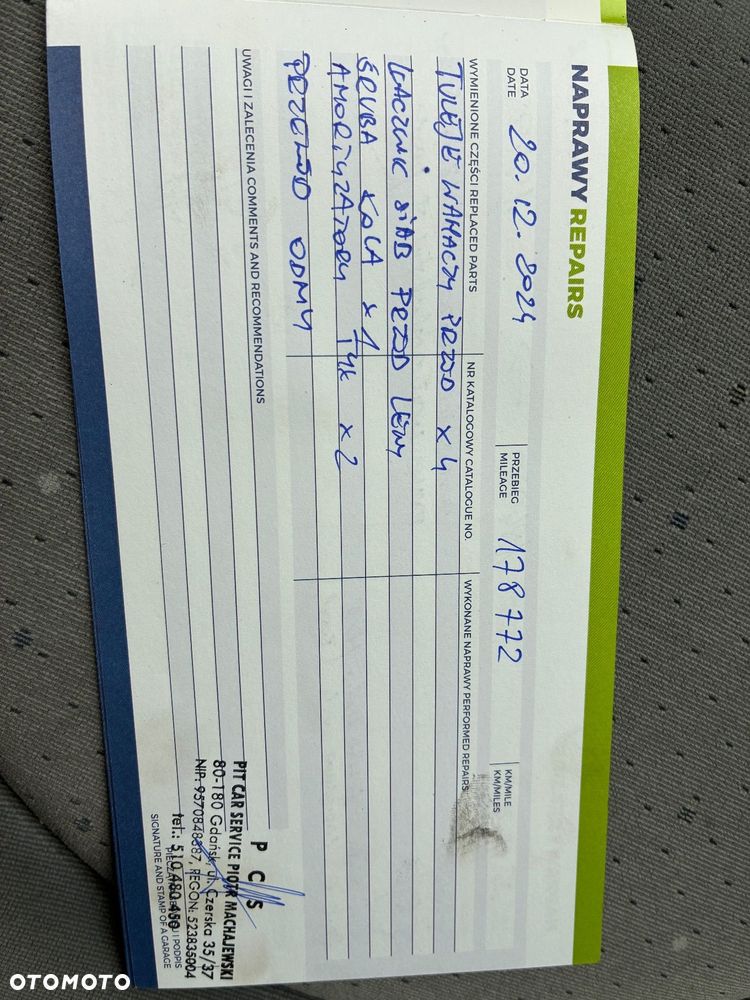 NAPRAWY REPAIRS
DATA
DATE
20.12.2024
PRZEBIEG
MILEAGE
178772
KM/MILE
KM/MILES
WYMIENIONE CZĘŚCI REPLACED PARTS
NR KATALOGOWY CATALOGUE NO.
WYKONANE NAPRAWY PERFORMED REPAIRS
TULEJE WAHACZY PRZÓD x 4
ŁĄCZNIK STAB PRZÓD LEWY
ŚRUBA KOŁA x 1
AMORTYZATORY TYŁ x 2
PRZEWÓD ODMY
UWAGI I ZALECENIA COMMENTS AND RECOMMENDATIONS
P C S
PIT CAR SERVICE PIOTR MACHAJEWSKI
80-180 Gdańsk, ul. Czerska 35/37
NIP: 9570848887, REGON: 523835004
tel.: 510 480 450
I PODPIS
SIGNATURE AND STAMP OF A GARAGE
OTOMOTO